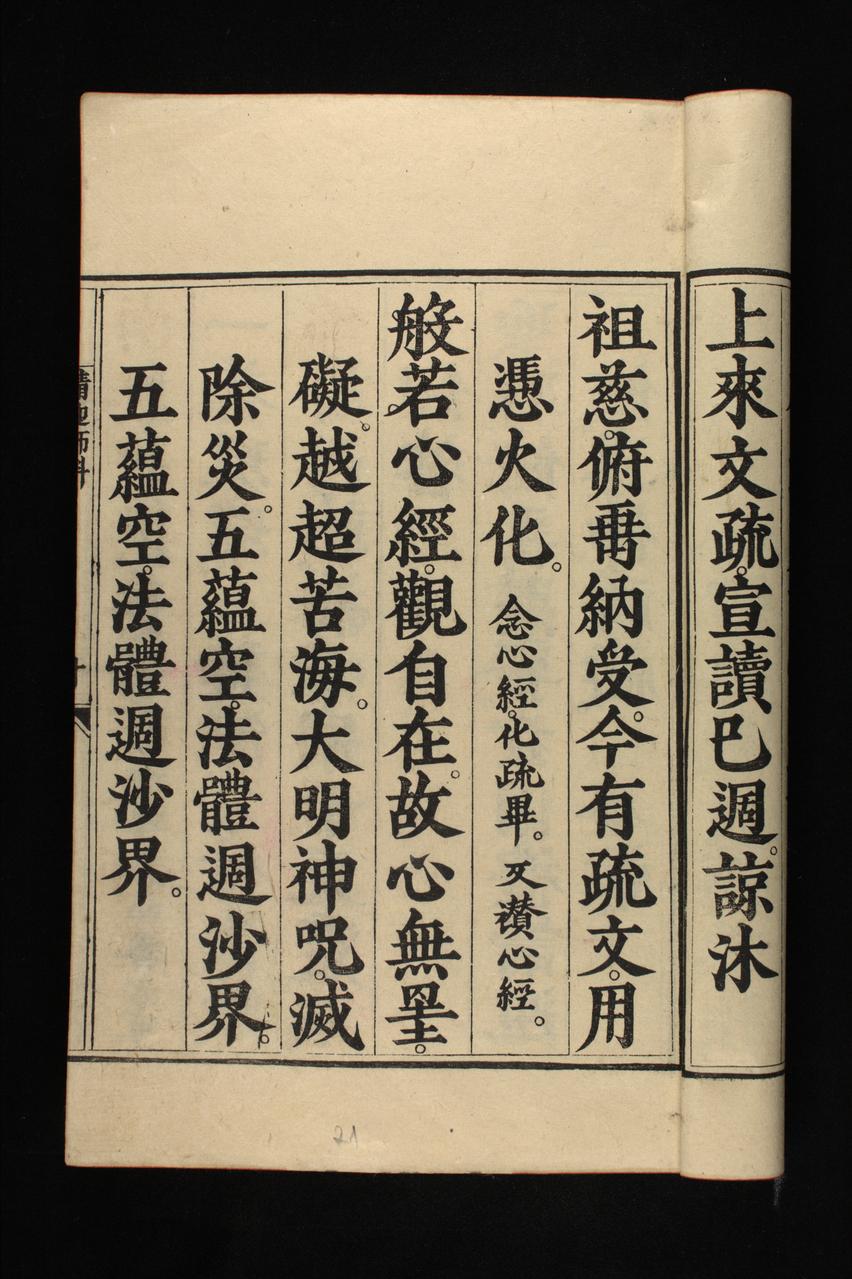 上來文疏。宣讀已週。諒沐
祖慈。俯垂納受。今有疏文。用
憑火化。念心經。化疏畢。又讚心經。
般若心經。觀自在。故心無罣。
礙。越超苦海。大明神呪。滅
除災。五蘊空。法體週沙界。
五蘊空。法體週沙界。
21